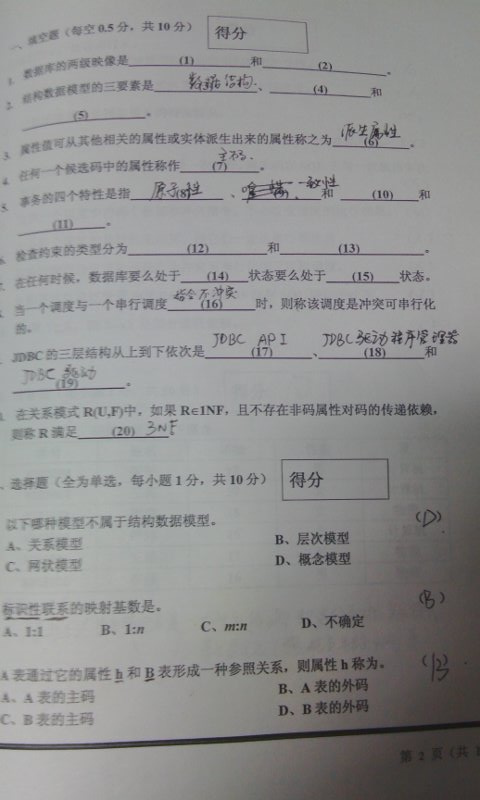 一、填空题（每空0.5分，共10分） 得分
1. 数据库的两级映像是 (1) 和 (2) 。
2. 结构数据模型的三要素是 数据结构 、 (4) 和
(5) 。
3. 属性值可从其他相关的属性或实体派生出来的属性称之为 派生属性 (6) 。
4. 任何一个候选码中的属性称作 主码 (7) 。
5. 事务的四个特性是指 原子性 (8) 、 一致性 和 (10) 和
(11) 。
6. 检查约束的类型分为 (12) 和 (13) 。
7. 在任何时候，数据库要么处于 (14) 状态要么处于 (15) 状态。
当一个调度与一个串行调度 指令不冲突 (16) 时，则称该调度是冲突可串行化
的。
JDBC的三层结构从上到下依次是 JDBC API (17) 、 JDBC驱动程序管理器 (18) 和
JDBC驱动 (19) 。
在关系模式 R(U,F)中，如果 R∈1NF，且不存在非码属性对码的传递依赖，
则称 R 满足 (20) 3NF
、选择题（全为单选，每小题1分，共10分） 得分
以下哪种模型不属于结构数据模型。 (D)
A、关系模型 B、层次模型
C、网状模型 D、概念模型
标识性联系的映射基数是。 (B)
A、1:1 B、1:n C、m:n D、不确定
A表通过它的属性 h 和 B 表形成一种参照关系，则属性 h 称为。 (B)
A、A 表的主码 B、A 表的外码
C、B 表的主码 D、B 表的外码
第 2 页（共